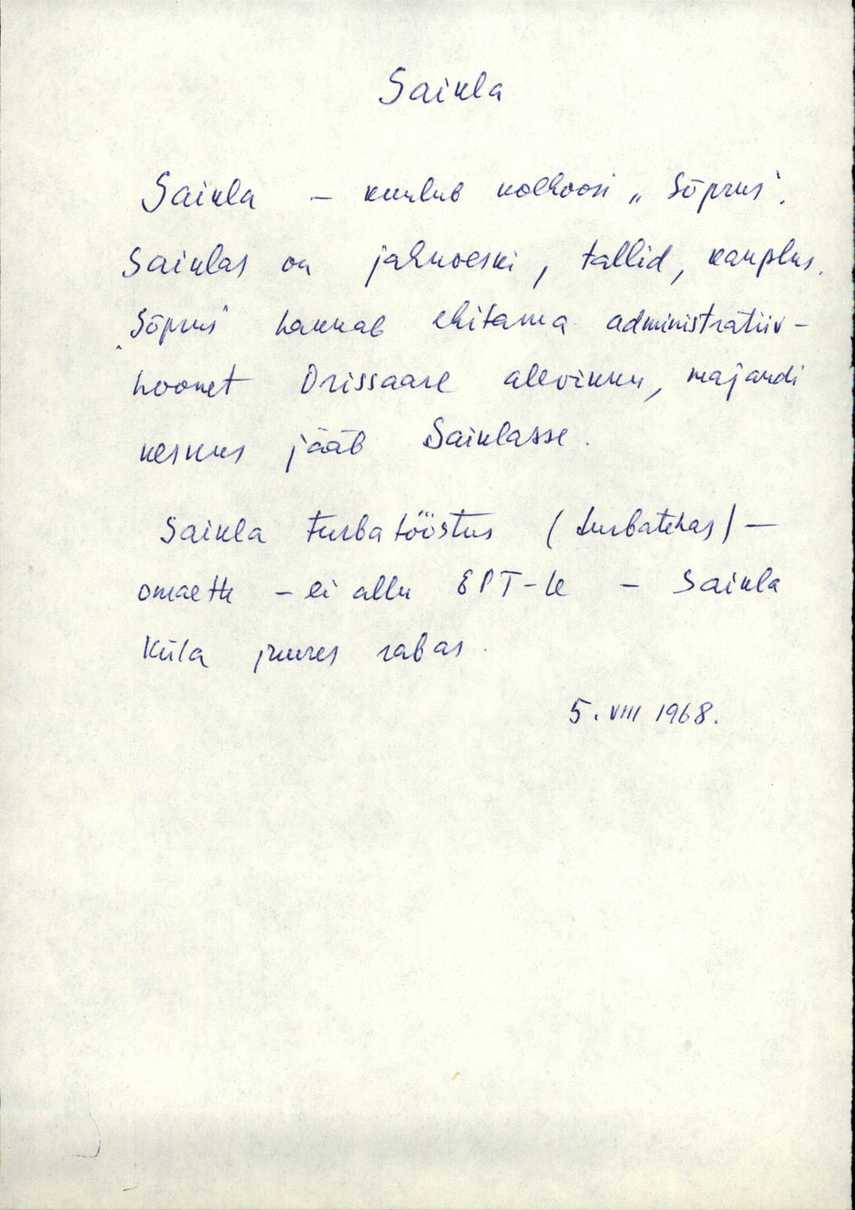 Saikla
Saikla – kuulub kolhoosi „Sõprus".
Saiklas on jahuveski, tallid, kauplus.
„Sõprus" hakkab ehitama administratiiv-
hoonet Orissaare alevikku, majandi
keskus jääb Saiklasse.
Saikla Turbatööstus (turbatehas) –
omaette – ei allu EPT-le – Saikla
küla juures rabas.
5. VIII 1968.